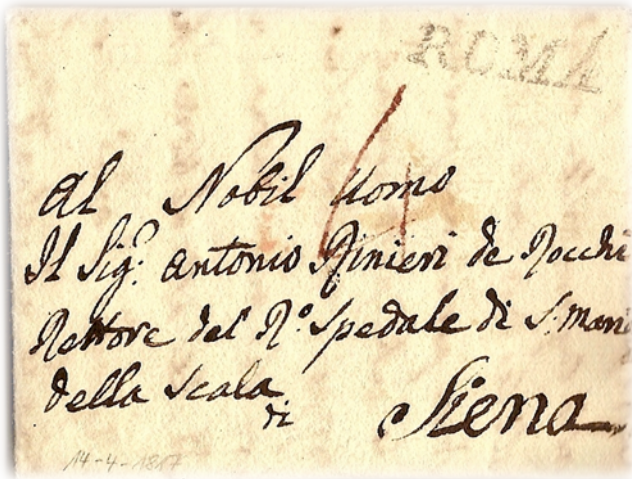 ROMA
Al Nobil Uomo
Il Sig.º Antonio Rinieri de Rocchi
Rettore del R.º Spedale di S. Mari
della Scala
di Siena
14-4-1817